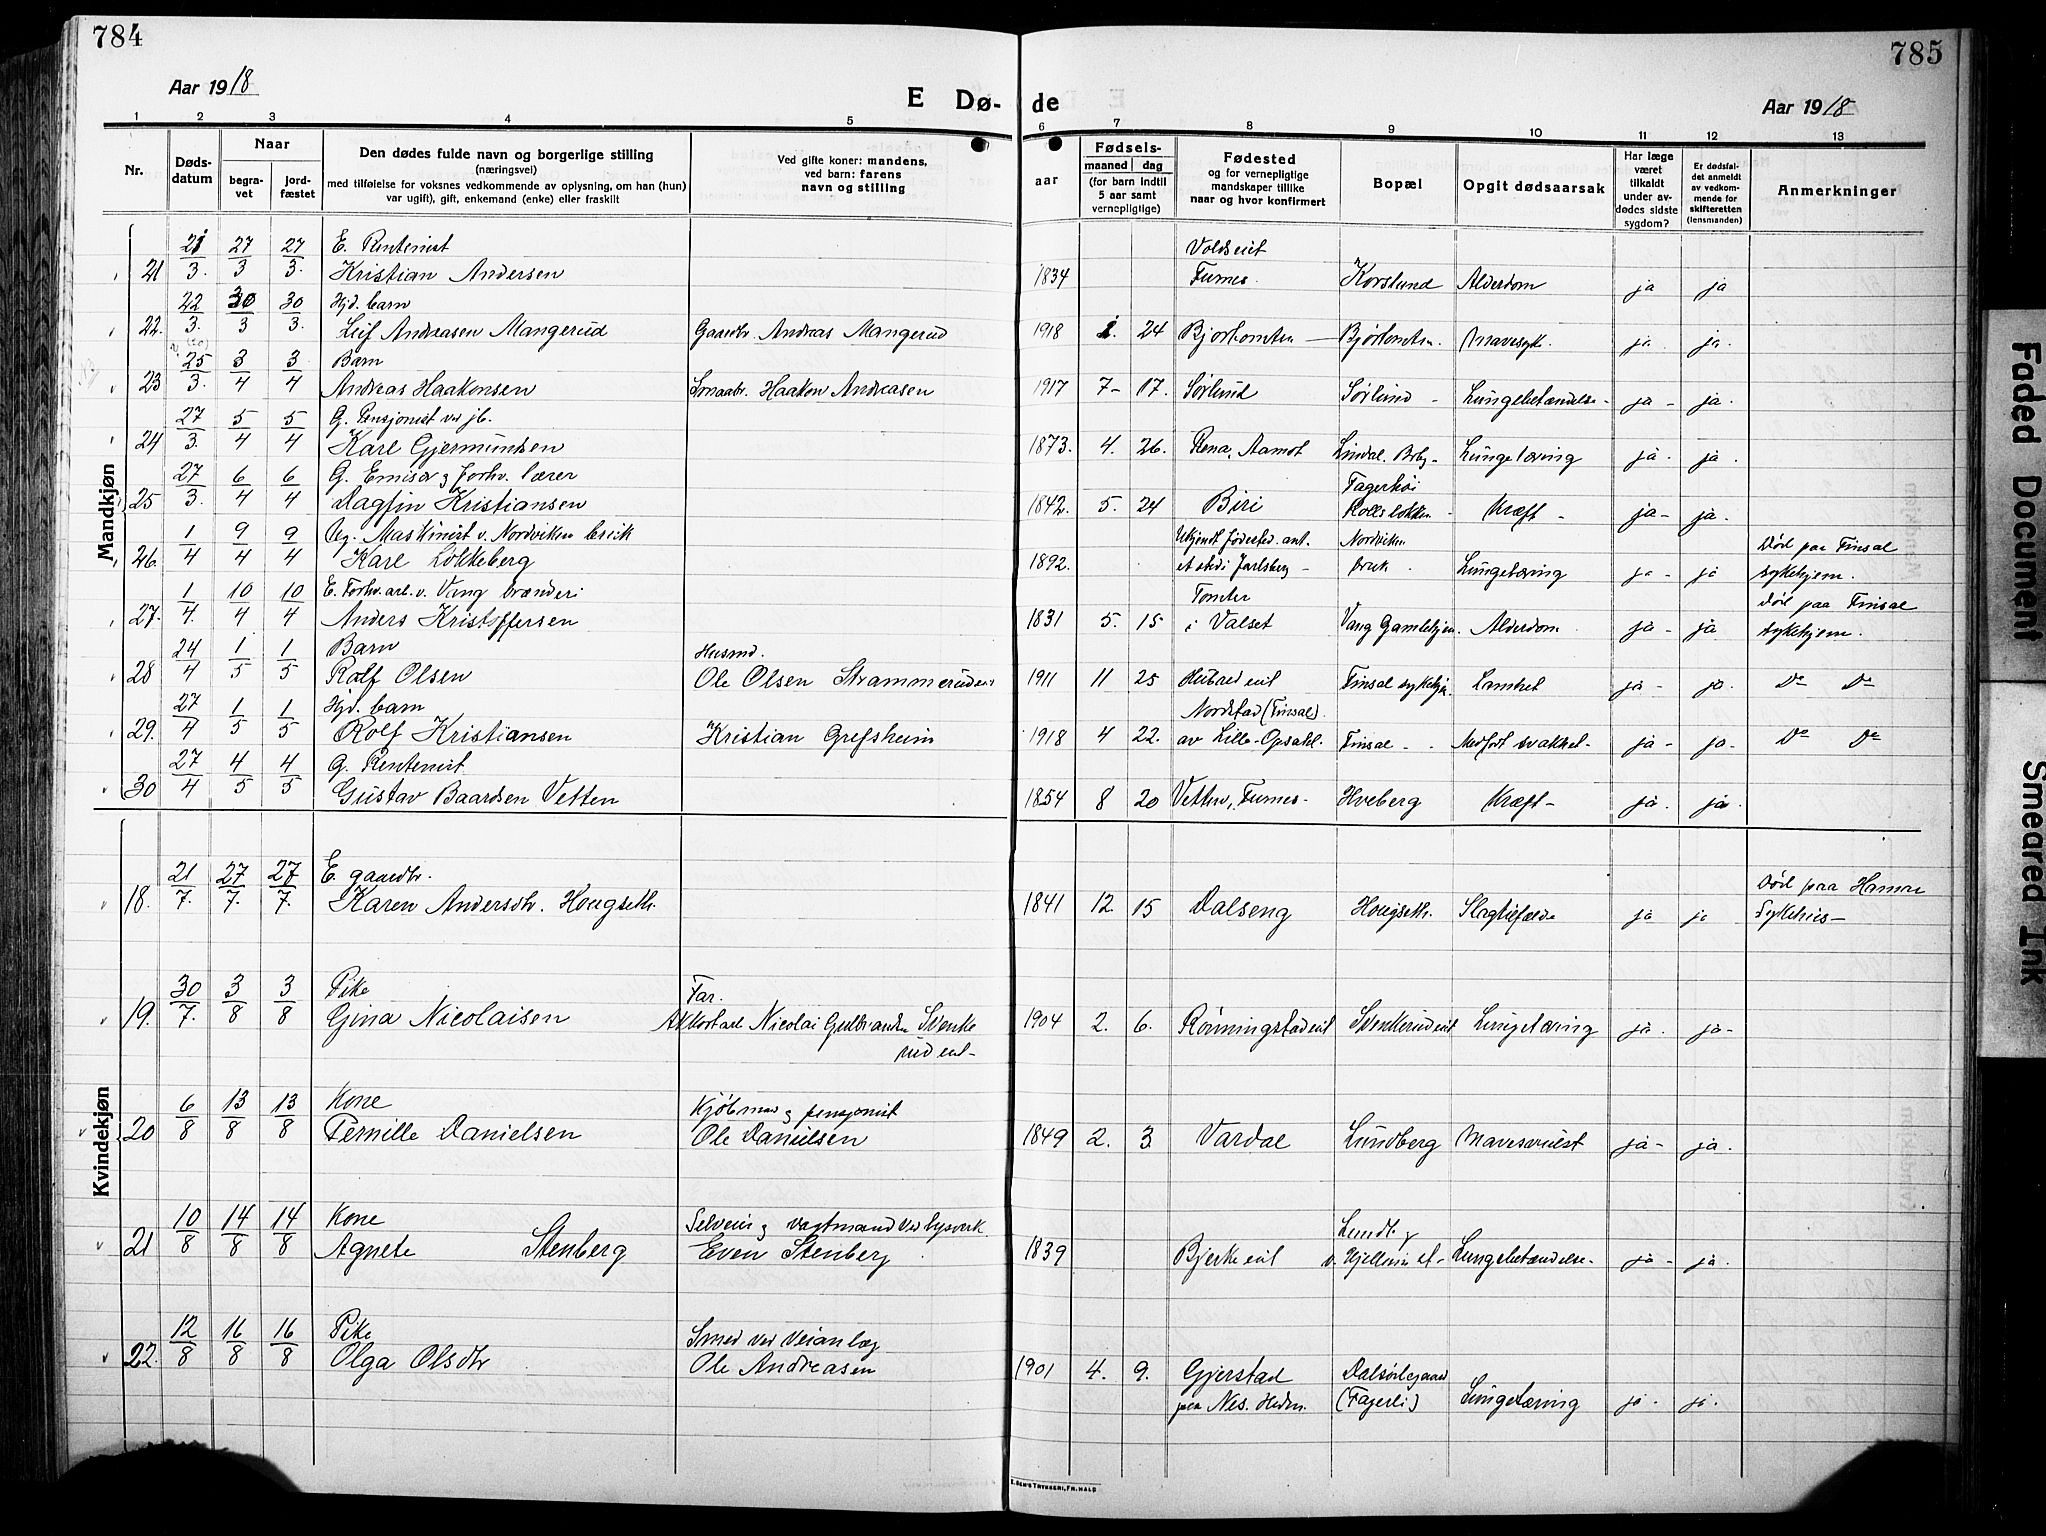 784
785
Aar 1918
E Dø-
de
Aar 1918
1 2 3 4 5 6 7 8 9 10 11 12 13
Nr.
Døds-
datum
Naar
begra-
vet
jord-
fæstet
Den dødes fulde navn og borgerlige stilling
(næringsvei)
med tilføielse for voksnes vedkommende av oplysning, om han (hun)
var ugift), gift, enkemand (enke) eller fraskilt
Ved gifte koner: mandens,
ved barn: farens
navn og stilling
aar
Fødsels-
maaned dag
(for barn indtil
5 aar samt
vernepligtige)
Fødested
og for vernepligtige
mandskaper tillike
naar og hvor konfirmert
Bopæl
Opgit dødsaarsak
Har læge
været
tilkaldt
under av-
dødes sidste
sygdom?
Er dødsfal-
det anmeldt
av vedkom-
mende for
skifteretten
(lensmanden)
Anmerkninger
Mandkjøn
21 27 27 E. Rentenist Voldseiet
21 3. 3 3. Kristian Andersen 1834 Furnes. Korslund Alderdom ja ja
22 30 30 Hjd. barn
22. 3. 3 3. Leif Andreasen Mangerud Gaardbr. Andreas Mangerud 1918 1. 24 Bjørtomten — Bjørtomten. Mavesyk. ja. ja.
25 3 3 Barn
23 3. 4 4 Andreas Haakonsen Smaabr. Haakon Andreasen 1917 7- 17. Sørlund Sørlund - Lungebetændelse- ja - ja.
27 5 5 G. Pensjonist ved jb.
24 3. 4 4 Karl Gjermundsen 1873. 4. 26. Rena, Aamot Lindal. Brby- Lungetæring ja. ja.
27 6 6 G. Emisær g forhv. lærer Fagerhøi
25 3. 4 4 Dagfin Kristiansen 1842. 5. 24 Biri Kræft - ja- ja.
1 9 9 Ug. Maskinist v. Nordviken bruk Ukjendt fødested. ant. Nordviken Død paa Finsal
26. 4 4 4 Karl Løkkeberg 1892. et sted i Jarlsberg - bruk. Lungetæring ja - ja sykehjem.
1 10 10 E. Forhv. arb. v. Vang brænderi Tomter Død paa Finsal
27. 4. 4 4 Anders Kristoffersen 1831 5. 15 i Valset Vang Gamlehjem. Alderdom ja - ja sykehjem.
24 1 1 Barn Husmd.
28 4 5 5 Rolf Olsen Ole Olsen Strammerudeiet 1911 11 25 Finsal sykehjem Lamhet ja - ja. Do Do
27 1 1 Hjd. barn Nordstad (Finsal).
29. 4 5 5 Rolf Kristiansen Kristian Grefsheim 1918 4 22. av Lille-Opsahl. Finsal - . Medfødt svakhet- ja - ja- Do Do
27 4 4 G. Rentenist.
30 4 5 5 Gustav Baardsen Vetten 1854 8 20 Vetten, Furnes- Hveberg Kræft- ja. ja.
Kvindekjøn
21 27 27 E. gaardbr. Død paa Hamar
18. 7. 7. 7. Karen Andersdtr. Hougseth. 1841 12. 15 Dalseng Hougseth. Slagtilfælde ja ja Sykehus-
30 3 3 Pike Far.
19. 7. 8 8 Gina Nicolaisen Akkordarb Nicolai Gulbrandsen Svenke 1904 2. 6. Rønningstadeiet Svenkerudeiet Lungetæring ja. ja-
rudeiet-
6 13 13 Kone Kjøbmand g pensjonist
20 8 8 8 Pernille Danielsen Ole Danielsen 1849 2. 3 Vardal Lundberg Mavesvulst ja- ja.
10 14 14 Kone Selveier g vagtmand ved lysverk Lundb. g
21 8 8 8 Agnete Stenberg Even Stenberg 1839 Bjerkeeiet v. Hjellum st- Lungebetændelse- ja - ja.
12 16 16 Pike Smed ved Veianlæg
22. 8 8 8 Olga Olsdtr Ole Andreasen 1901 4. 9. Gjerstad
paa Nes. Hedm. (Fagerli) Lungetæring ja. ja.
TRYKKERI, FR.HALD
Faded Document
Smeared Ink